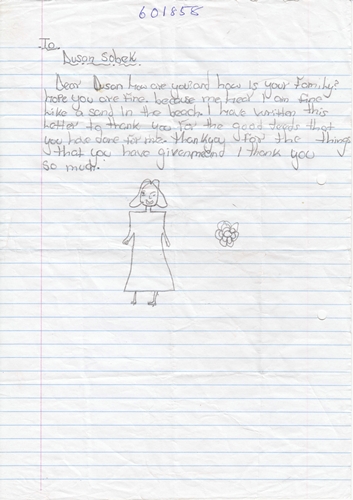 601858
To
Dusan Sobek
Dear Dusan how are you? and how is your Family?
hope you are fine. because me hear I am fine
like a sand in the beach. I have written this
Letter to thank you for the good deeds that
you have done for me. thankyou for the things
that you have givenmeand I thank you
so much.